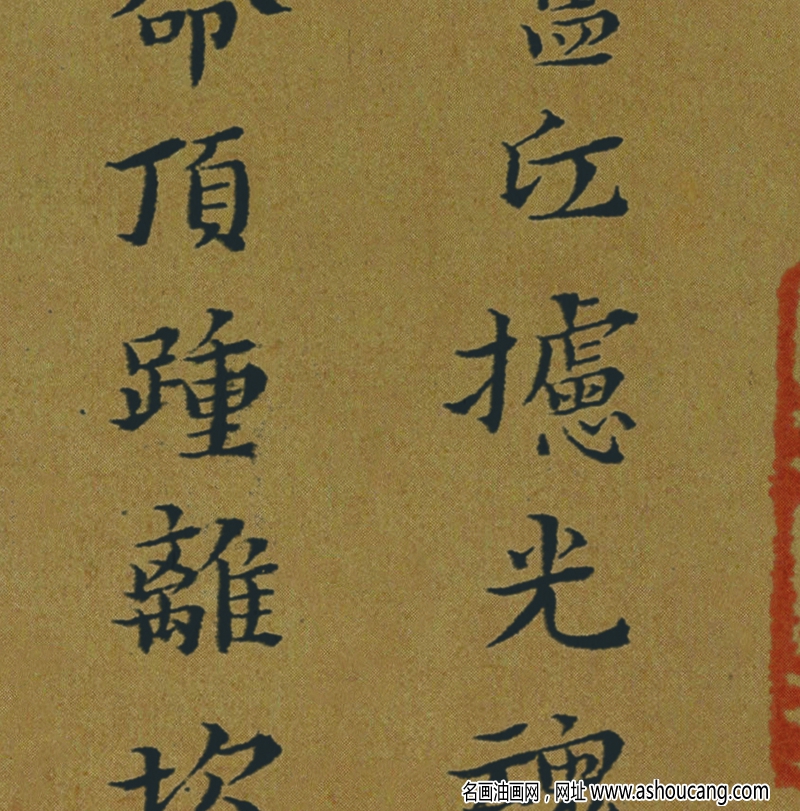 江攄光
命頂踵離坎
名画油画网，网址 www.ashoucang.com